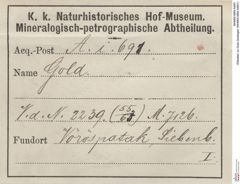 K. k. Naturhistorisches Hof-Museum.
Mineralogisch-petrographische Abtheilung.
Acq.-Post A. i. 691.
Name Gold.
V. d. N. 2239. (55/63) M. 7126.
Fundort Vöröspatak, Siebenb.
I.